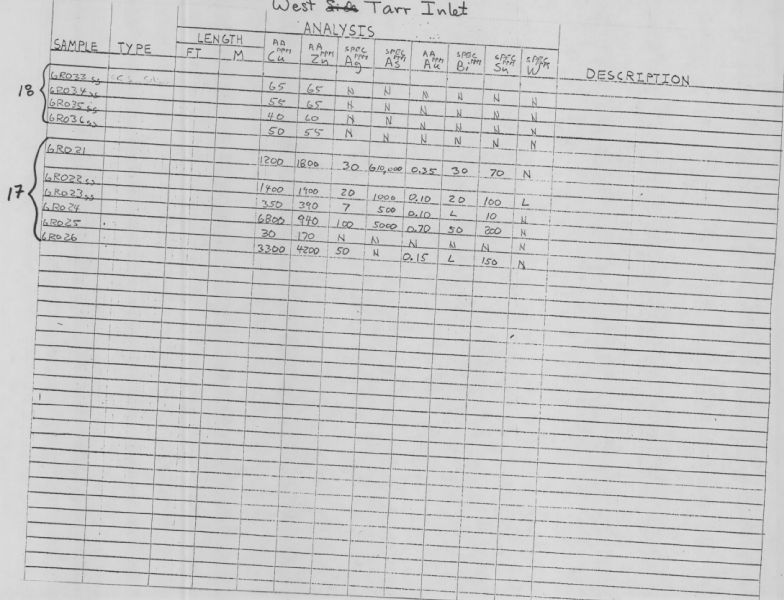 West Side Tarr Inlet
ANALYSIS
LENGTH
SAMPLE TYPE FT M AA ppm Cu AA ppm Zn SPEC ppm Ag SPEC ppm As AA ppm Au SPEC ppm Bi SPEC ppm Sn SPEC ppm W DESCRIPTION
18
6R033ss 65 65 N N N N N N
6R034ss 55 65 N N N N N N
6R035ss 40 60 N N N N N N
6R036ss 50 55 N N N N N N
17
6R021 1200 1800 30 G10,000 0.35 30 70 N
6R022ss 1400 1400 20 1000 0.10 20 100 L
6R023ss 350 390 7 500 0.10 L 10 N
6R024 6800 940 100 5000 0.70 50 200 N
6R025 30 170 N N N N N N
6R026 3300 4200 50 N 0.15 L 150 N